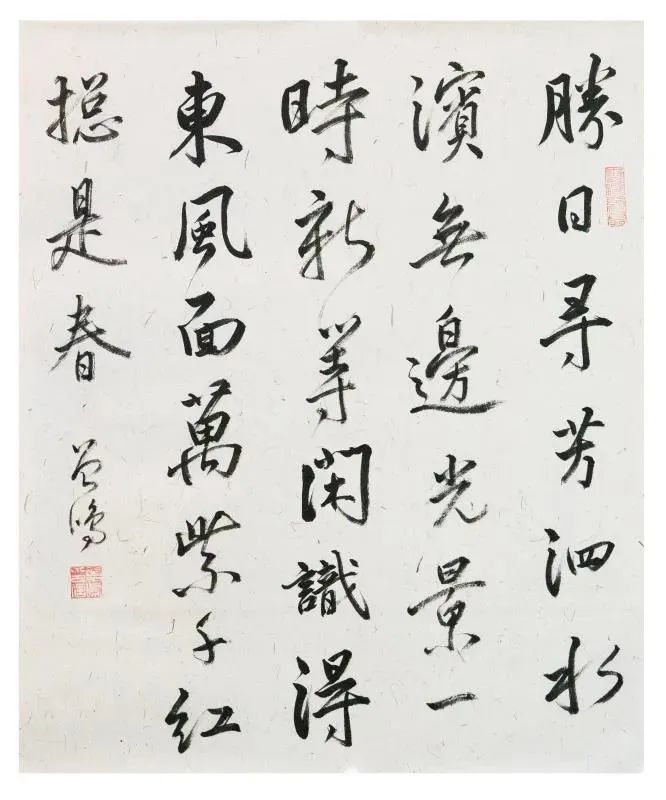 勝日尋芳泗水
濱無邊光景一
時新等閑識得
東風面萬紫千紅
摠是春